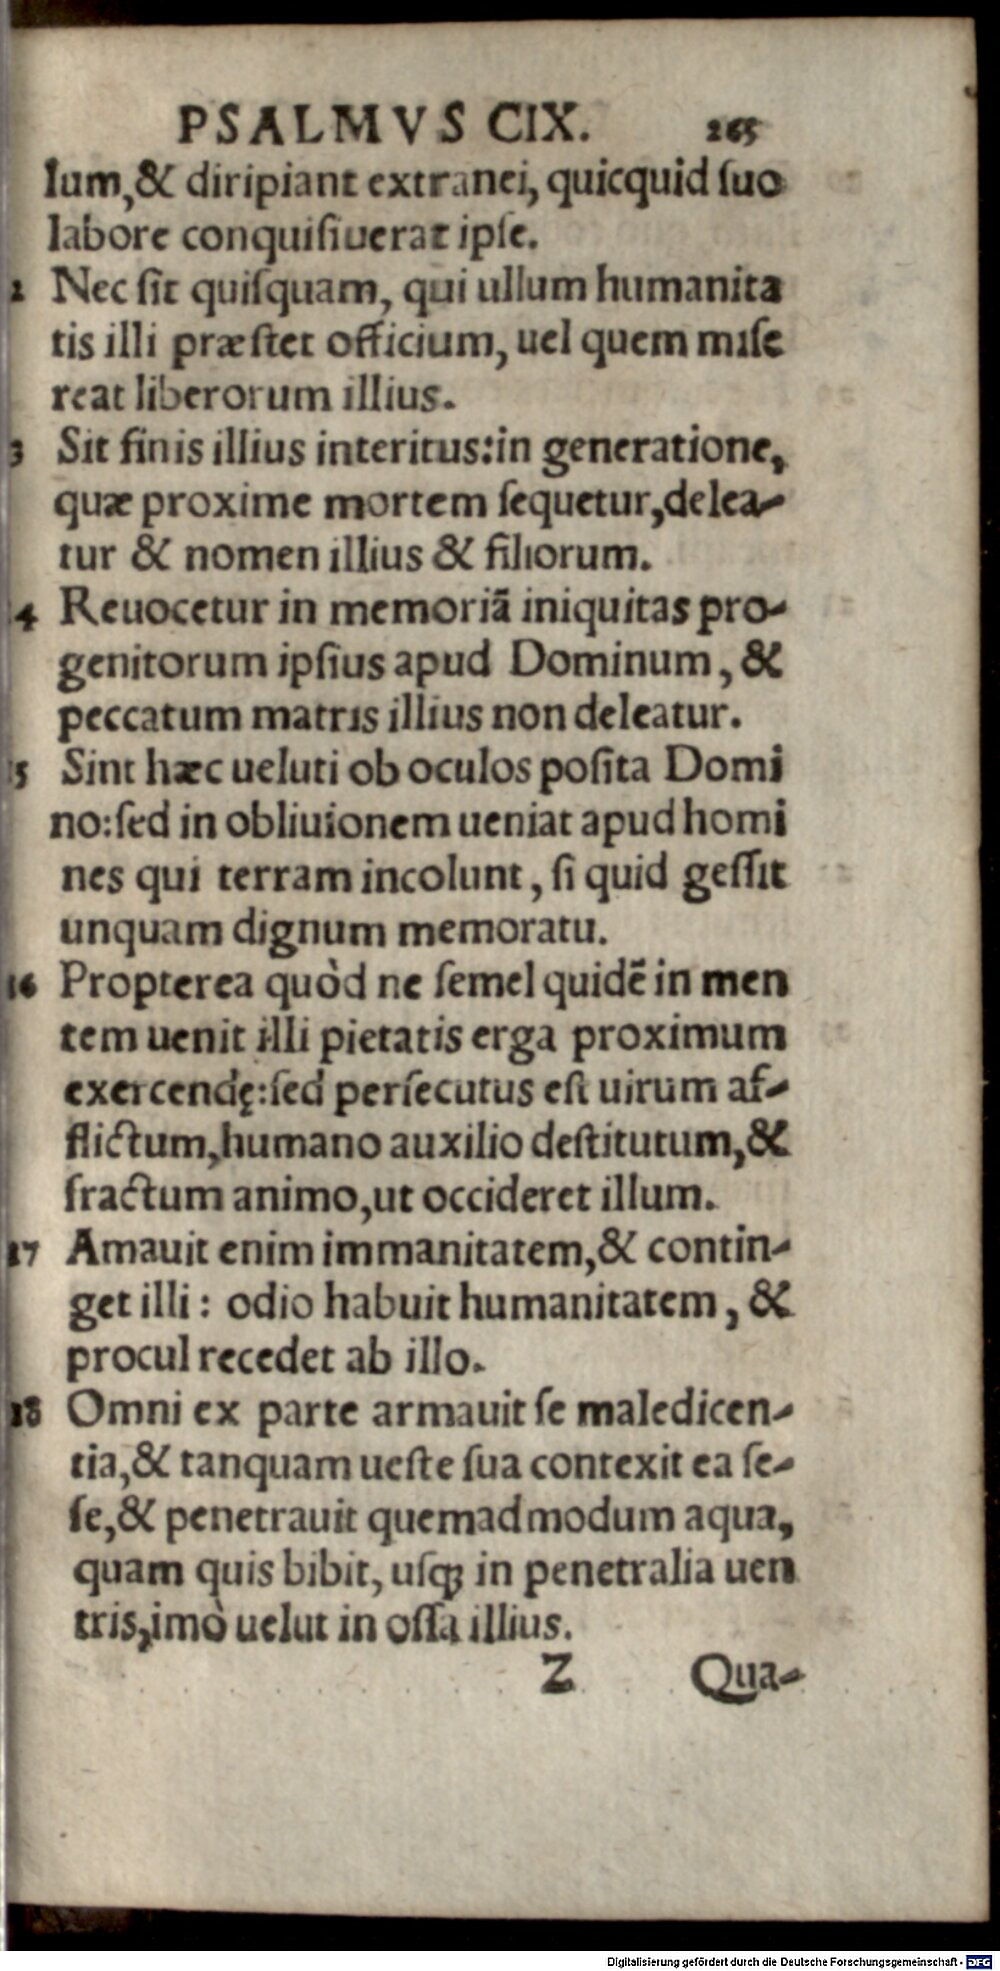 PSALMVS CIX. 265
lum,& diripiant extranei, quicquid ſuo
labore conquiſiuerat ipſe.
2 Nec ſit quiſquam, qui ullum humanita
tis illi præſtet officium, uel quem miſe
reat liberorum illius.
3 Sit finis illius interitus:in generatione,
quæ proxime mortem ſequetur,delea-
tur & nomen illius & filiorum.
4 Reuocetur in memoriã iniquitas pro-
genitorum ipſius apud Dominum, &
peccatum matris illius non deleatur.
15 Sint hæc ueluti ob oculos poſita Domi
no:ſed in obliuionem ueniat apud homi
nes qui terram incolunt, ſi quid geſſit
unquam dignum memoratu.
16 Propterea quòd ne ſemel quidẽ in men
tem uenit illi pietatis erga proximum
exercendę:ſed perſecutus eſt uirum af-
flictum,humano auxilio deſtitutum,&
fractum animo,ut occideret illum.
17 Amauit enim immanitatem,& contin-
get illi: odio habuit humanitatem, &
procul recedet ab illo.
18 Omni ex parte armauit ſe maledicen-
tia,& tanquam ueſte ſua contexit ea ſe-
ſe,& penetrauit quemadmodum aqua,
quam quis bibit, uſq; in penetralia uen
tris,imò uelut in oſſa illius.
Z Qua-
Digitalisierung gefördert durch die Deutsche Forschungsgemeinschaft - DFG